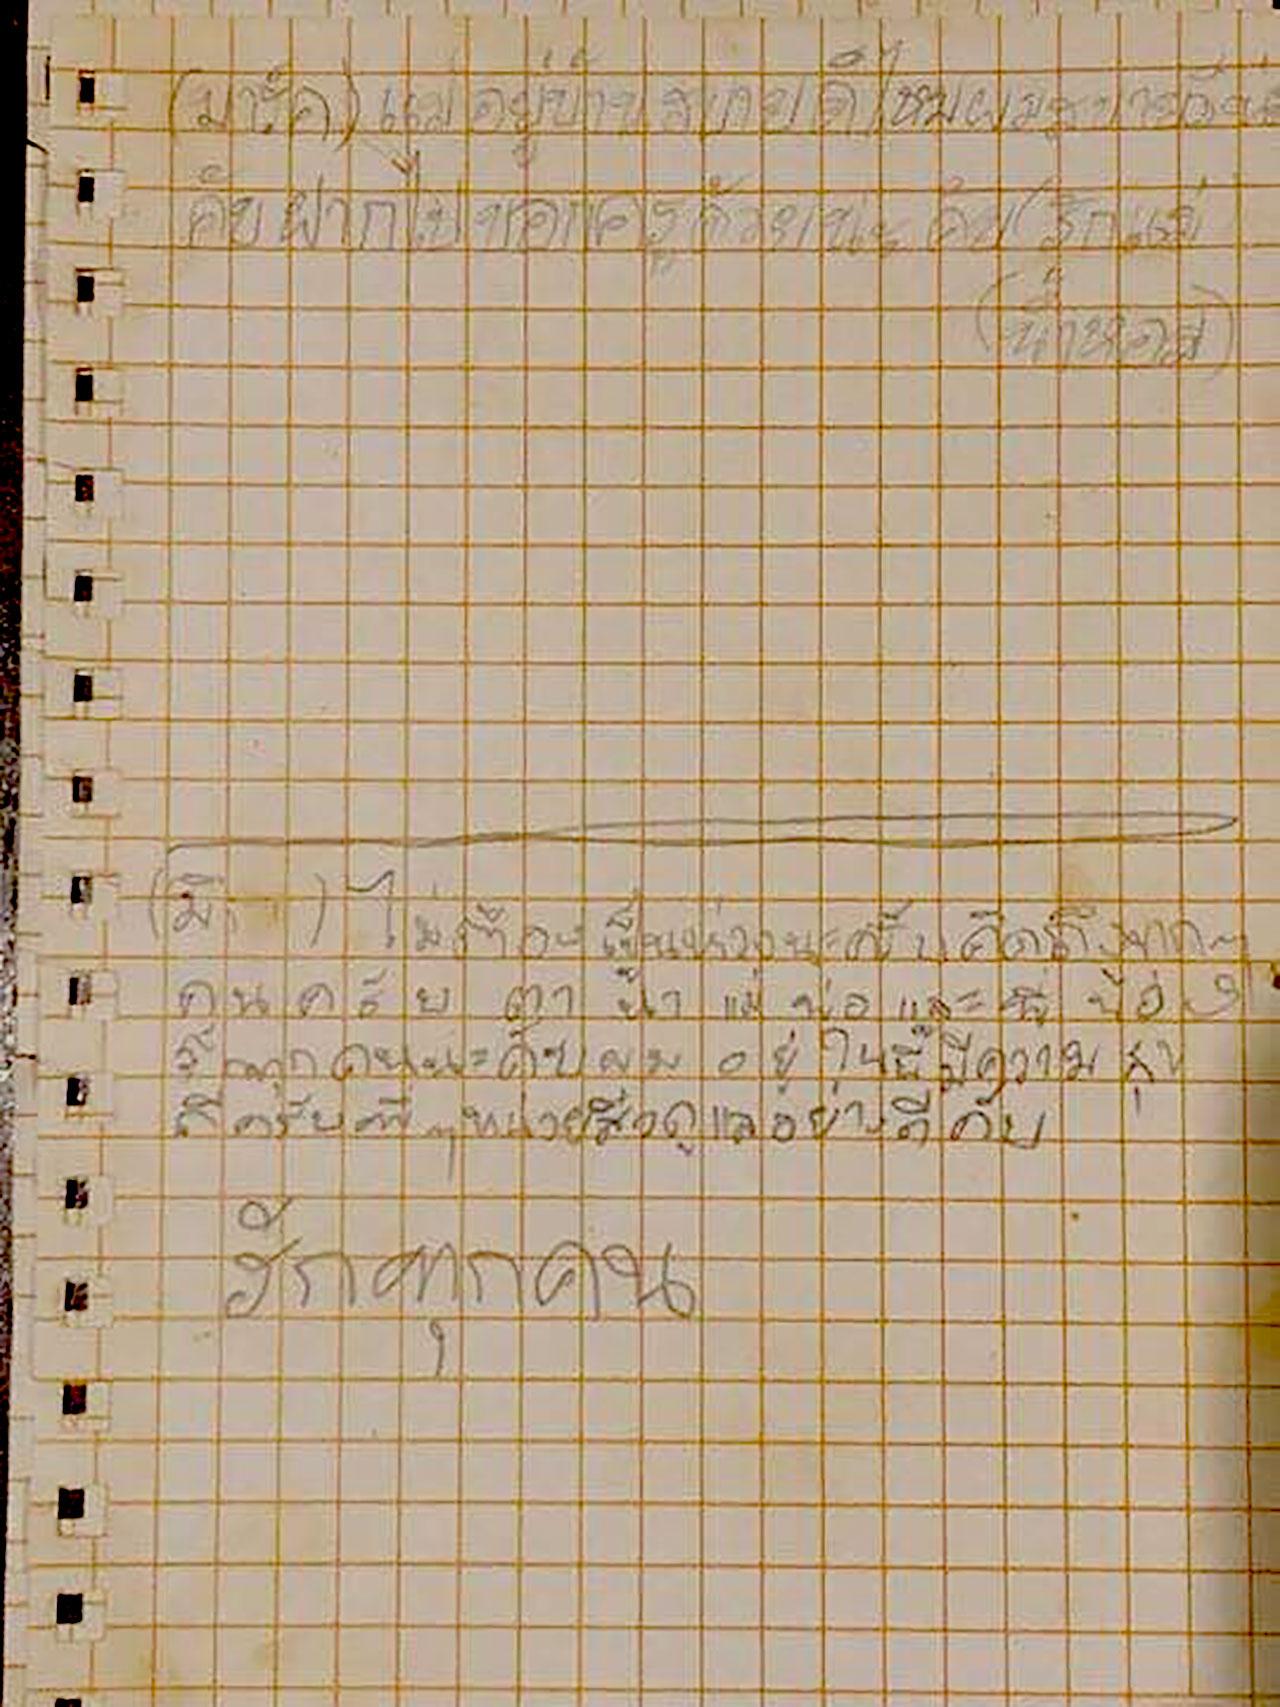 (มาร์ค) แม่อยู่บ้านสบายดีไหมผมสบายดี
คับฝากไปบอกครูด้วยนะคับ(รักแม่
(น้ำหอส)
(มิ ) ไม่ต้องเป็นห่วงนะครับคิดถึงทุกๆ
คนครับ ตา น้า แม่ พ่อ และพี่ น้อง
รักทุกคนนะคับผมอยู่ในนี้มีความสุข
ดีครับพี่ๆหน่วยซีวดูแลอย่างดีคับ
รักทุกคน